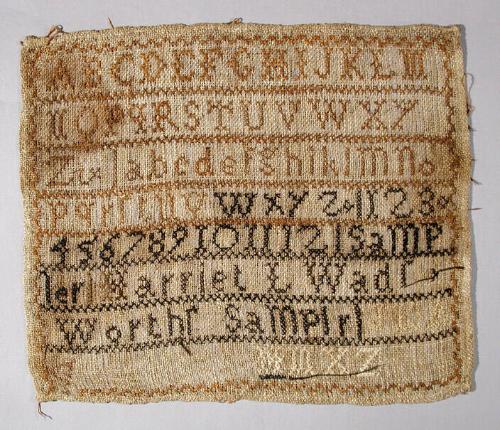 A B C D E F G H I J K L M
N O P Q R S T U V W X Y
Z a b c d e f g h i k l m n o
p q r W X Y Z 1 2 3
4 5 6 7 8 9 10 11 12 1 Samp
ler Harriet L Wad
Worths Samplr